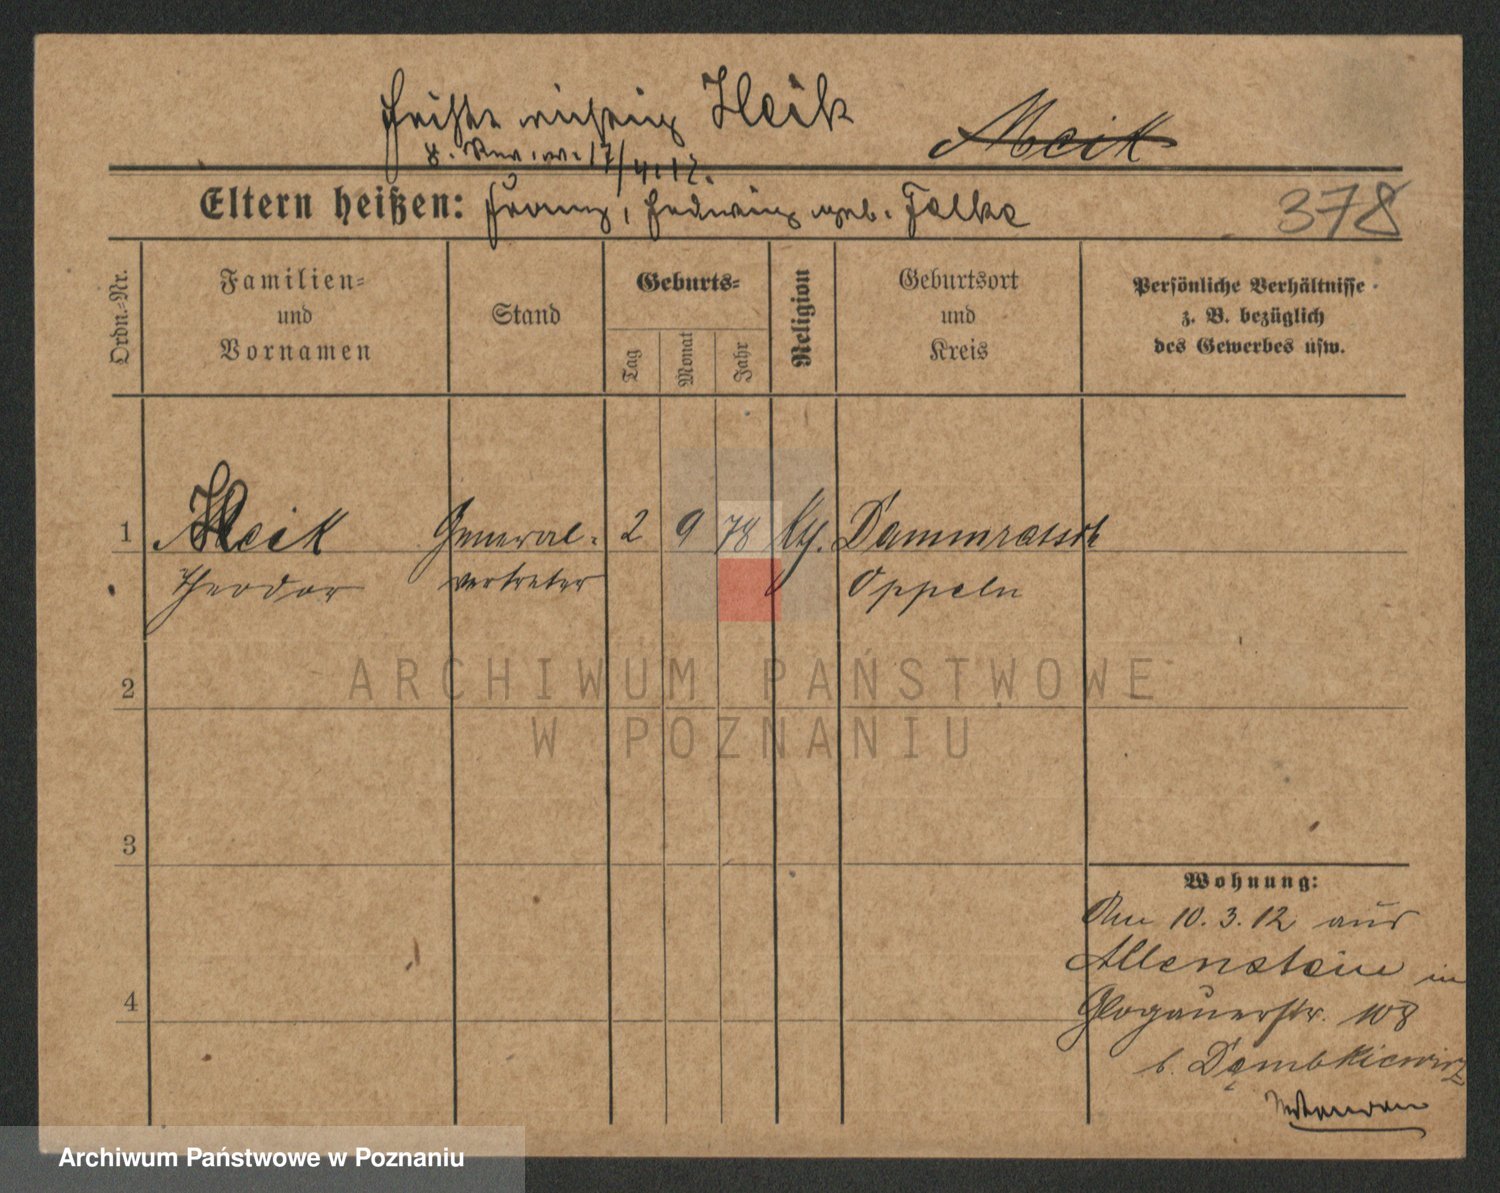 heißt richtig Heik
Meik
z. Rev. w. 17/4.12.
Eltern heißen: Franz, Hedwig geb. Falke
378
Ordn.-Nr.
Familien-
und
Vornamen
Stand
Geburts-
Tag
Monat
Jahr
Religion
Geburtsort
und
Kreis
Persönliche Verhältnisse
z. B. bezüglich
des Gewerbes usw.
1 Heik General- 2 9 78 Dammratsch
Theodor vertreter Oppeln
2
3
4
ARCHIWUM PAŃSTWOWE
W POZNANIU
Wohnung:
Am 10.3.12 aus
Allenstein in
Glogauerstr. 108
b. Dąmbkiewicz
Archiwum Państwowe w Poznaniu